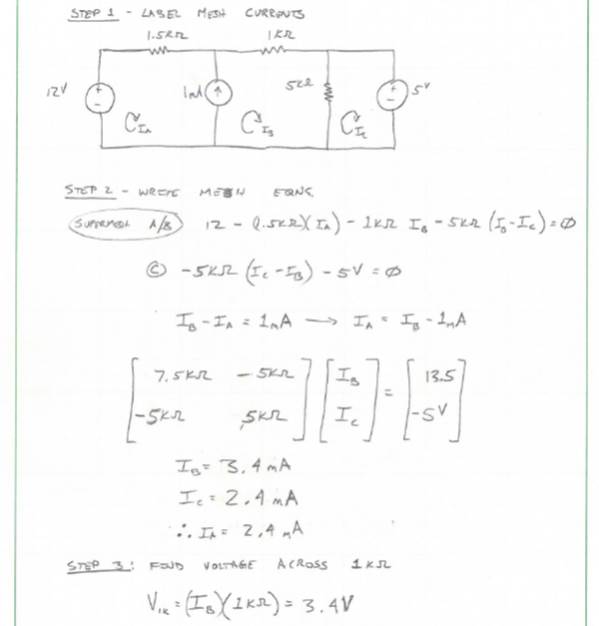 STEP 1 - LABEL MESH CURRENTS
1.5KΩ 1KΩ
12V + - 1mA 5KΩ + - 5V
I_A I_B I_C
STEP 2 - WRITE MESH EQNS
SUPERMESH A/B 12 - (1.5KΩ)(I_A) - 1KΩ I_B - 5KΩ (I_B - I_C) = Ø
Ⓒ -5KΩ (I_C - I_B) - 5V = Ø
I_B - I_A = 1mA → I_A = I_B - 1mA
[ 7.5KΩ -5KΩ ] [ I_B ] = [ 13.5 ]
[ -5KΩ 5KΩ ] [ I_C ] [ -5V ]
I_B = 3.4mA
I_C = 2.4mA
∴ I_A = 2.4mA
STEP 3: FIND VOLTAGE ACROSS 1KΩ
V_1K = (I_B)(1KΩ) = 3.4V